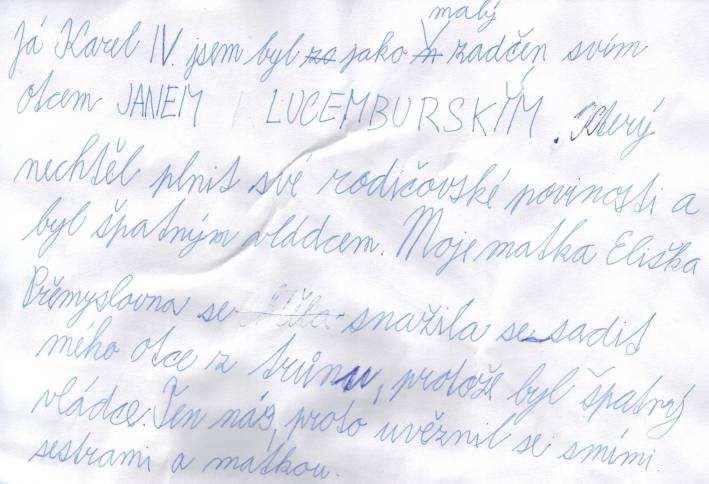 malý
Já Karel IV. jsem byl za jako zadčen svím
otcem JANEM LUCEMBURSKÝM. Který
nechtěl plnit své rodičovské povinosti a
byl špatným vládcem. Moje matka Eliška
Přemyslovna se snažila se sadit
mého otce z trůnu, protože byl špatný
vládce. Ten náz, proto uvěznil se smími
sestrami a matkou.